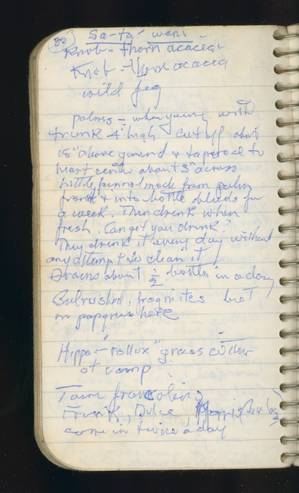 Sa-ta' wani
Knob-thorn acacia
Knob-thorn acacia
wild fig
palms - when young with
trunk 4' high cut off about
18" above ground & tapered to
heart center about 3" across
little funnel made from palm
frond & into bottle bleeds for
a week. Then drink when
fresh. Can get you drunk.
They drink it every day without
any attempt to clean it
Drains about ½ bottle in a day
Bulrushes, fragmites but
no papyrus here
Hippo - "rollux" grass
at camp
Tame francolins
Frank, Dulcie,
come in twice a day